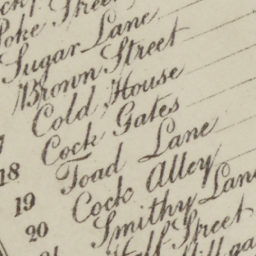 Poke Street
Sugar Lane
Brown Street
Cold House
Cock Gates
18 Toad Lane
19 Cock Alley
20 Smithy Lane
Half Street